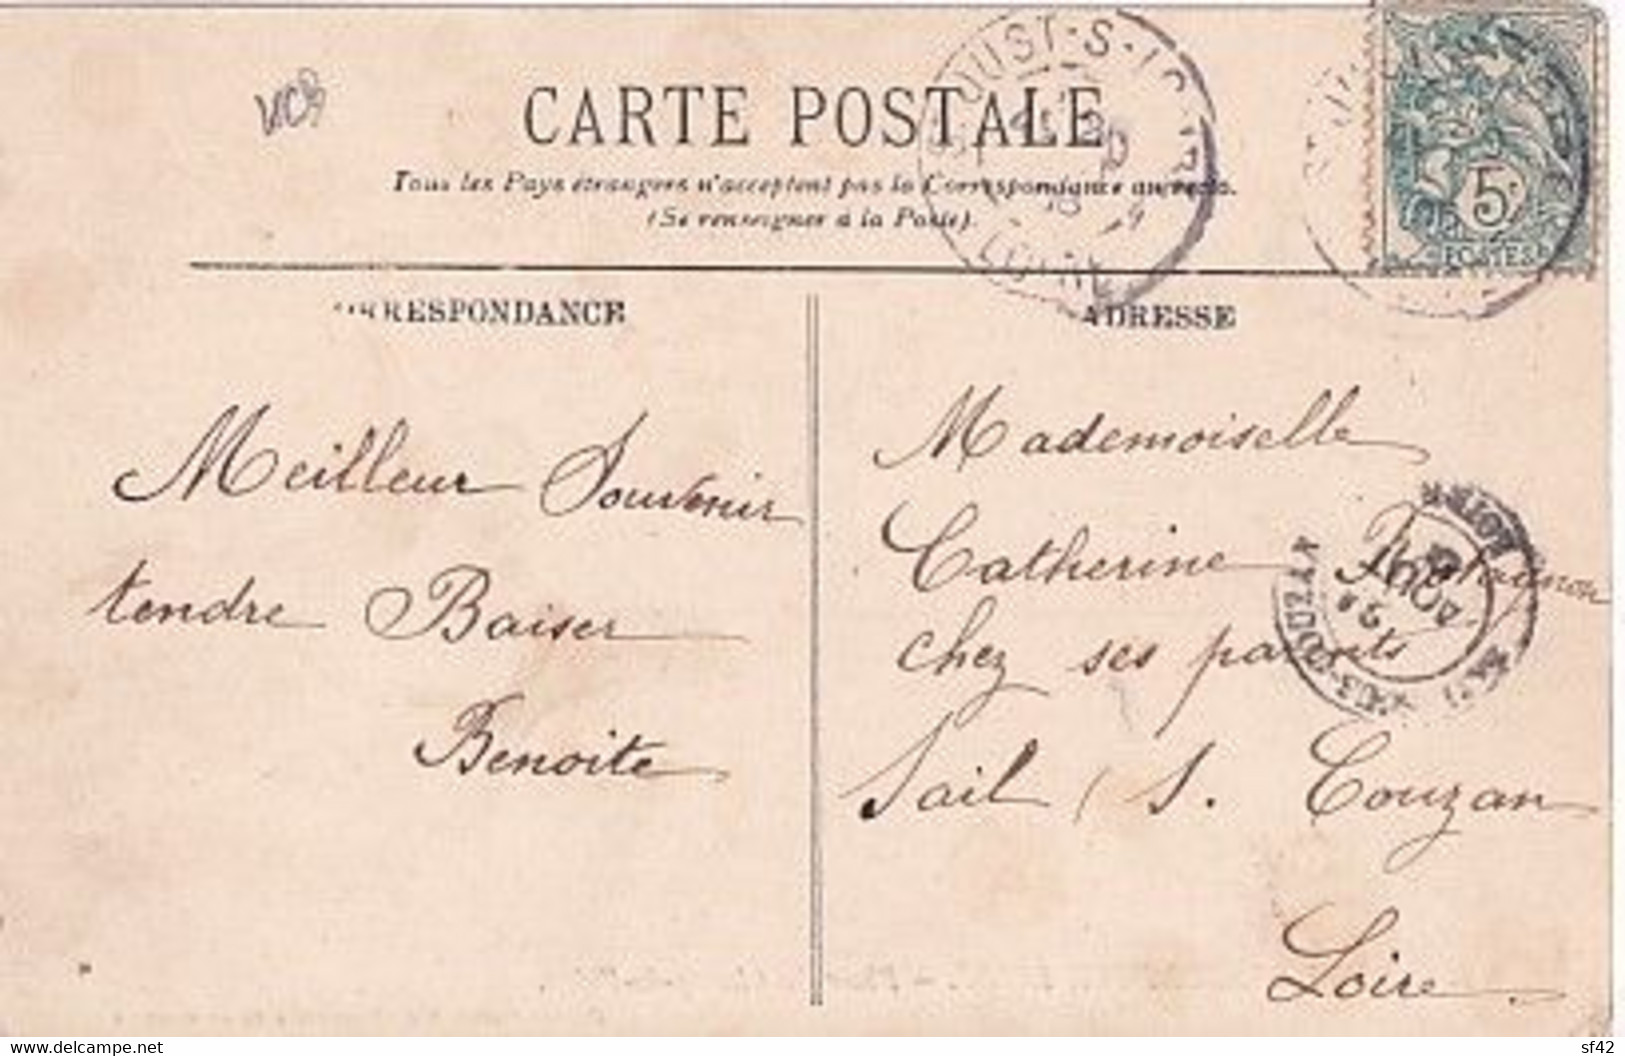 CARTE POSTALE
Tous les Pays étrangers n'acceptent pas la Correspondance au recto.
(Se renseigner à la Poste).
CORRESPONDANCE
ADRESSE
5c
POSTES
Meilleur Souvenir
tendre Baiser
Benoite
Mademoiselle
Catherine
chez ses parents
Sail / S. Couzan
Loire
www.delcampe.net
sf42